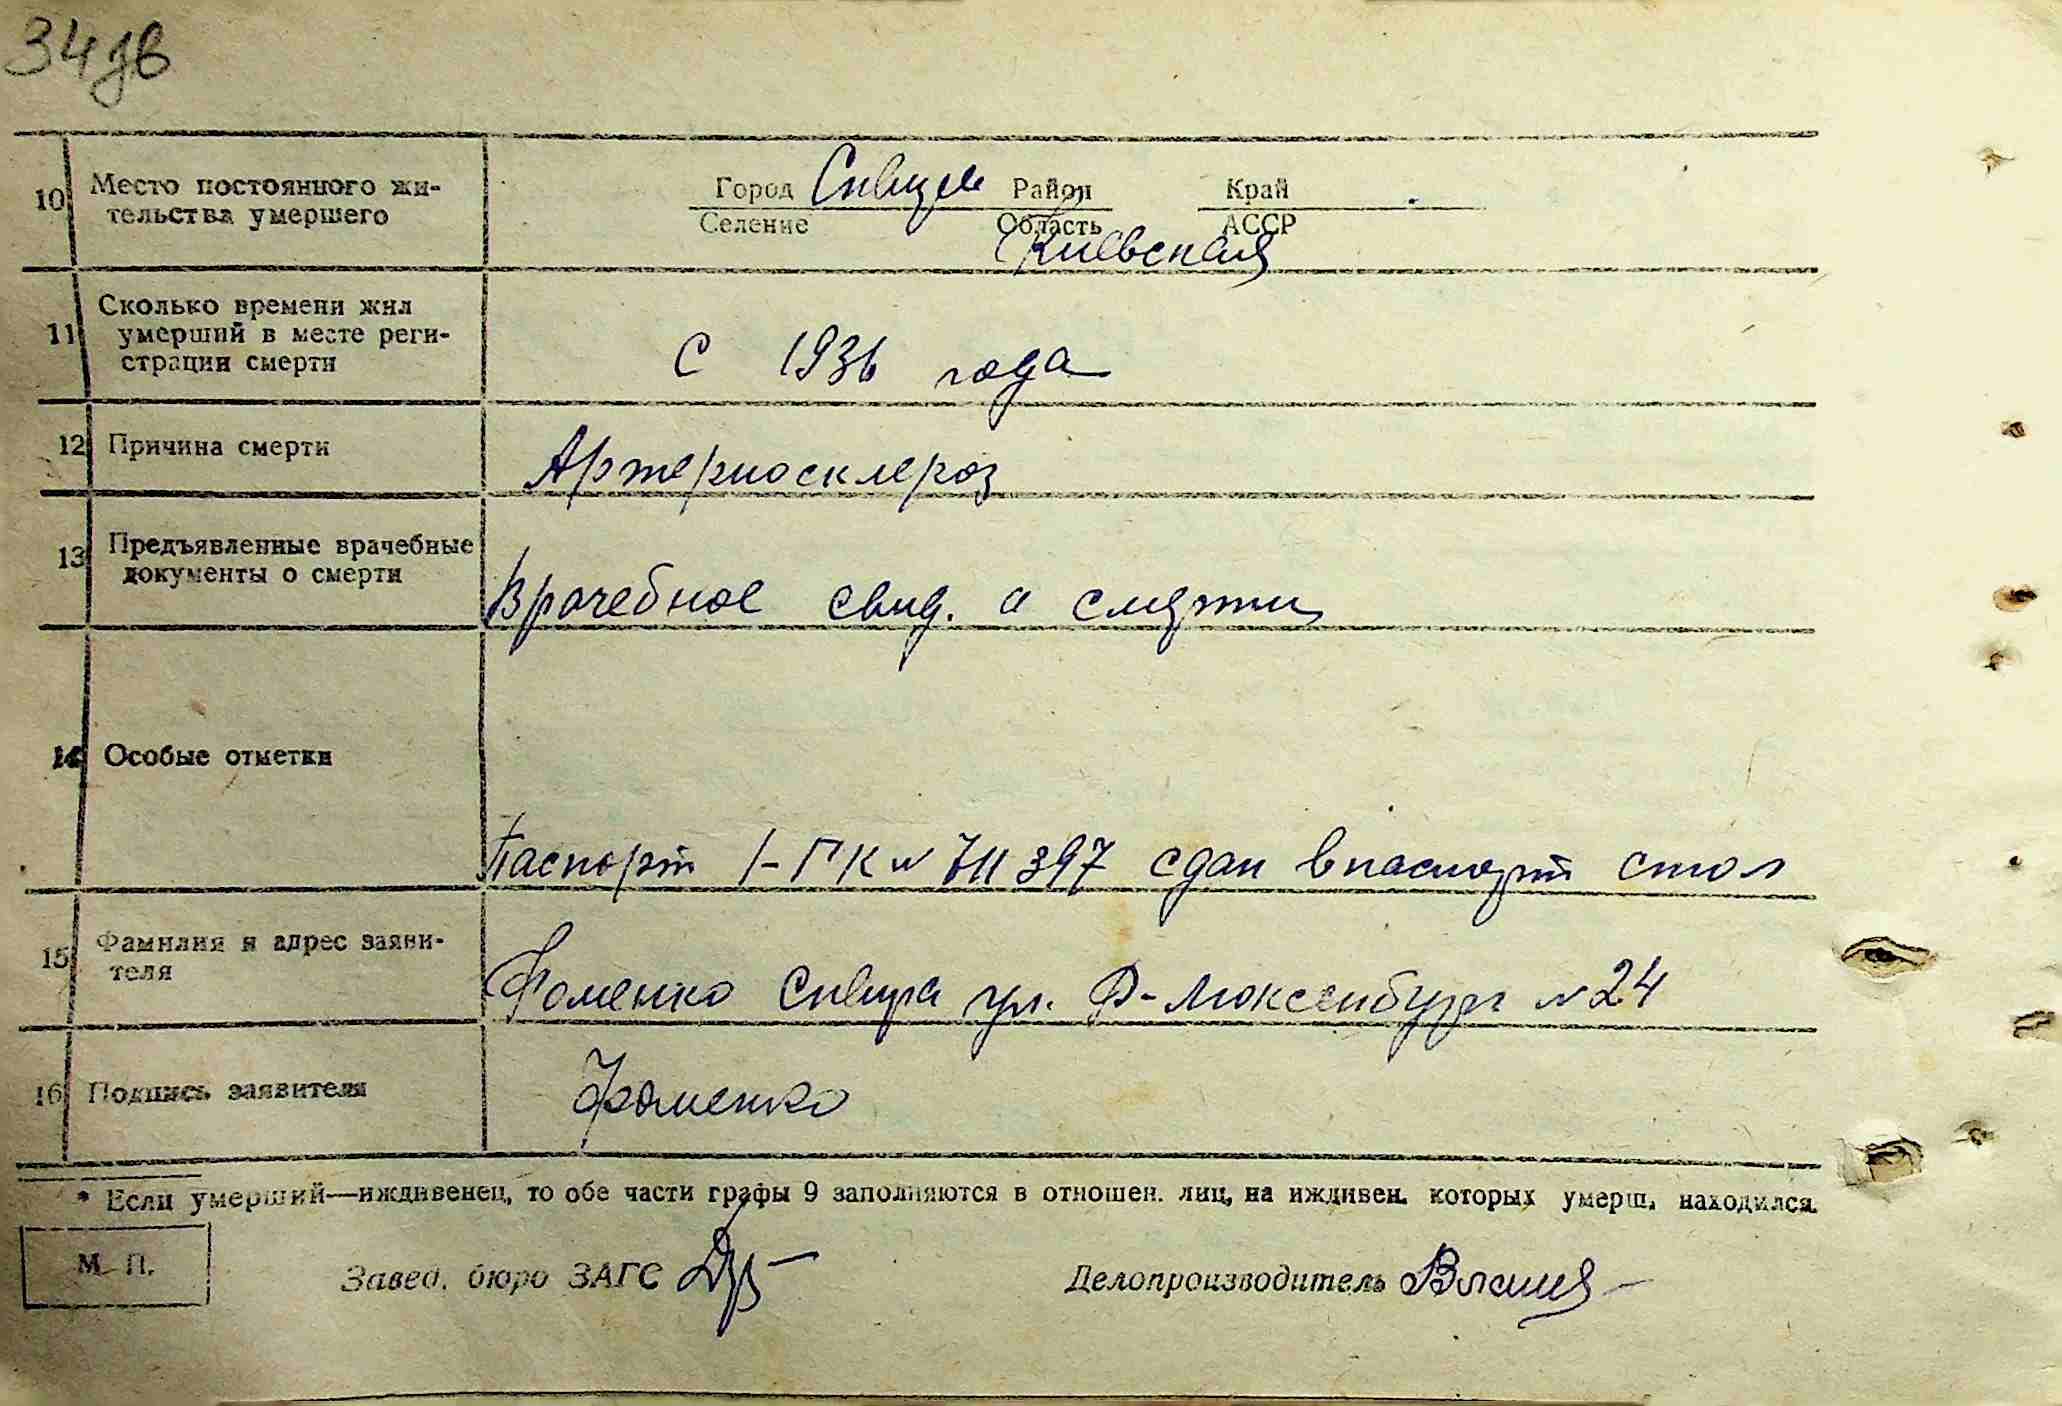 34зв
10 Место постоянного жи-
тельства умершего
Город Сквира Район Край
Селение Область АССР
Киевская
11 Сколько времени жил
умерший в месте реги-
страции смерти
с 1936 года
12 Причина смерти
Артериосклероз
13 Предъявленные врачебные
документы о смерти
Врачебное свид. о смерти
14 Особые отметки
Паспорт 1-ГК № 711397 сдан в паспорт стол
15 Фамилия и адрес заяви-
теля
Фоменко Сквира ул. Р-Люксенбург № 24
16 Подпись заявителя
Фоменко
* Если умерший—иждивенец, то обе части графы 9 заполняются в отношен. лиц, на иждивен. которых умерш. находился.
М. П.
Завед. бюро ЗАГС
Делопроизводитель